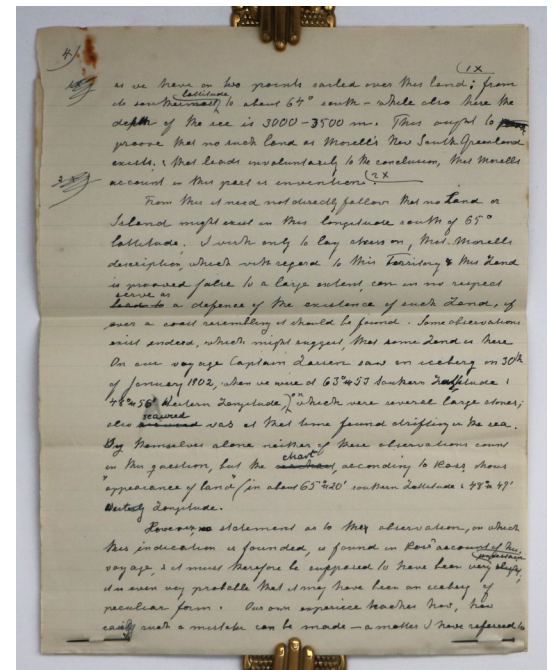 4)
1X
as we have on two points sailed over this land; from
its southernmost lattitude to about 64° south – while also here the
depth of the sea is 3000–3500 m. This ought to
proove that no such land as Morell's New South Greenland
exists. & that leads involuntarily to the conclusion, that Morells
account in this part is invention. 2X
From this it need not directly follow that no Land or
Island might exist in this longitude south of 65°
lattitude. I wish only to lay stress on, that Morells
description, which with regard to this Territory & this Land
is prooved false to a large extent, can in no respect
lead to serve as a defence of the existence of such Land, if
ever a coast resembling it should be found. Some observations
exist indeed, which might suggest, that some Land is there
On our voyage Captain Larsen saw an iceberg on 30th
of January 1902, when we were at 63° Southern Lattitude &
Western Longitude, on which were several large stones;
also seaweed was at that time found drifting in the sea.
By themselves alone neither of these observations count
in this question, but the chart, according to Ross, shows
"appearance of land" (in about 65° 20' southern Lattitude & 48° 47'
Westerly Longitude.
However, no statement as to the observation, on which
this indication is founded, is found in Ross' account of his
voyage, & it must therefore be supposed to have been very
it is even very probable that it may have been an iceberg of
peculiar form. Our own experience teaches how, how
easily such a mistake can be made – a matter I have referred to